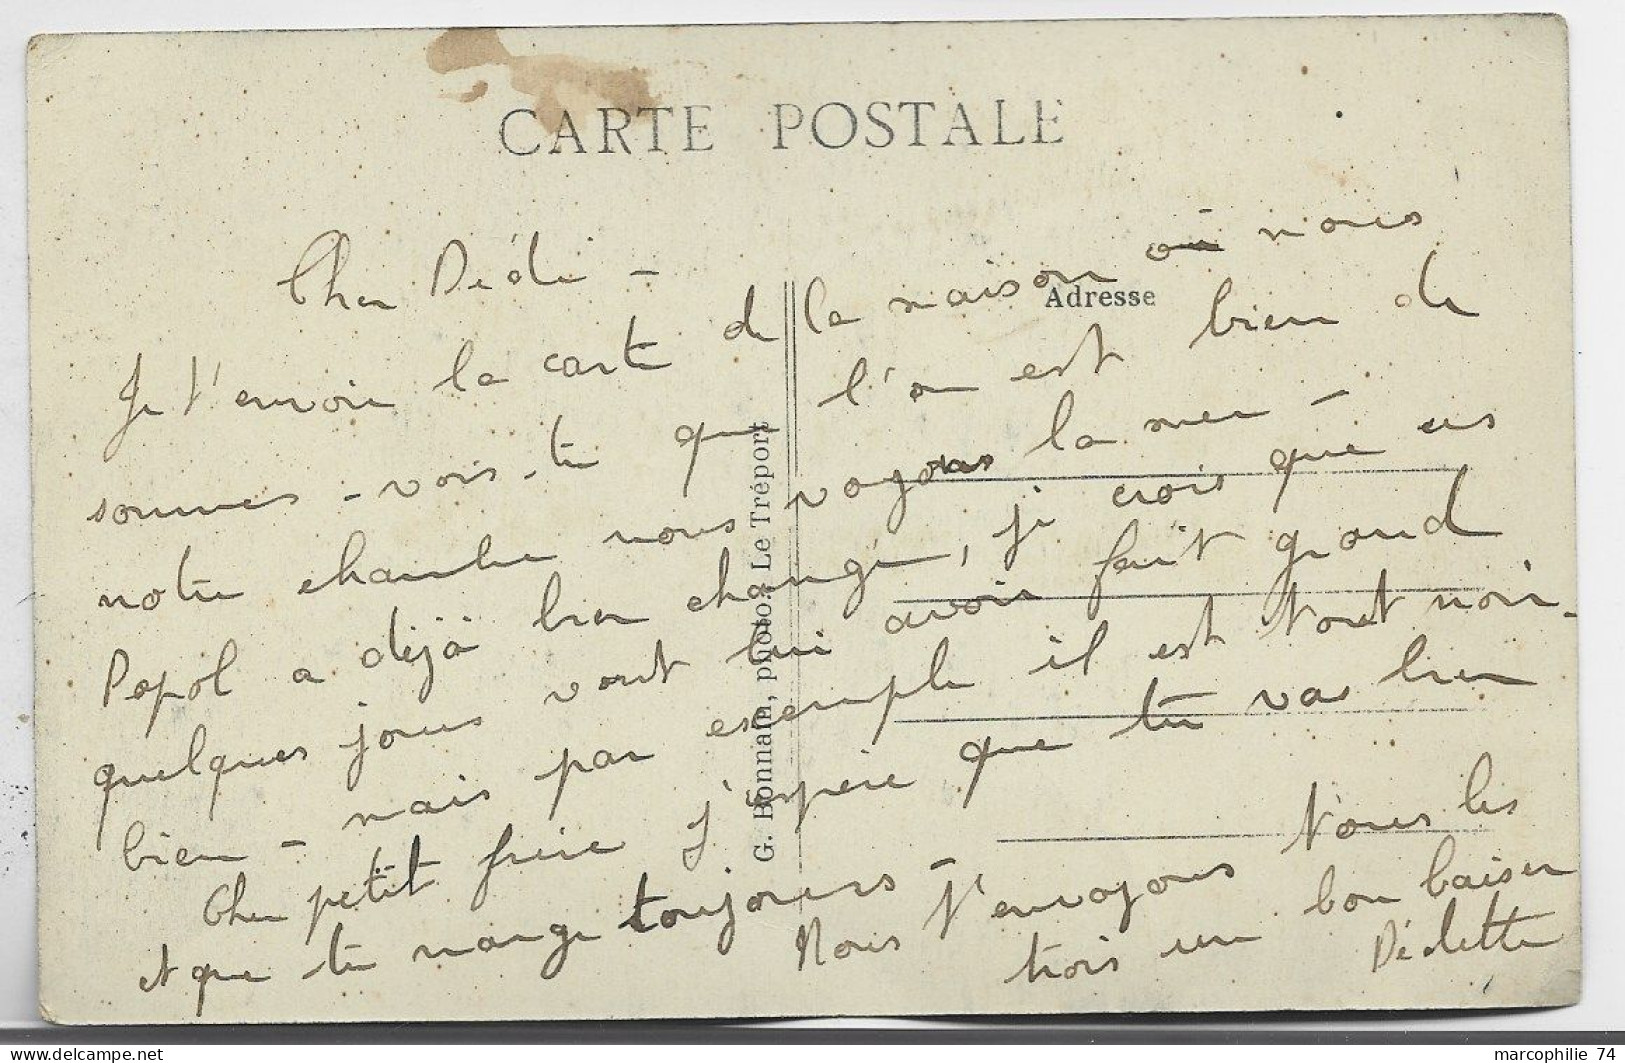 CARTE POSTALE
Adresse
G. Bonnain, photo., Le Tréport
Cher Dédé -
Je t'envoie la carte de la maison où nous
sommes - vois-tu que l'on est bien de
notre chambre nous voyons la mer -
Popol a déjà bien changé, je crois que ces
quelques jours vont lui avoir fait grand
bien - mais par exemple il est tout noir -
Cher petit frère j'espère que tu vas bien
et que tu mange toujours -
Nous t'envoyons tous les
trois un bon baiser
Dédette
marcophilie 74